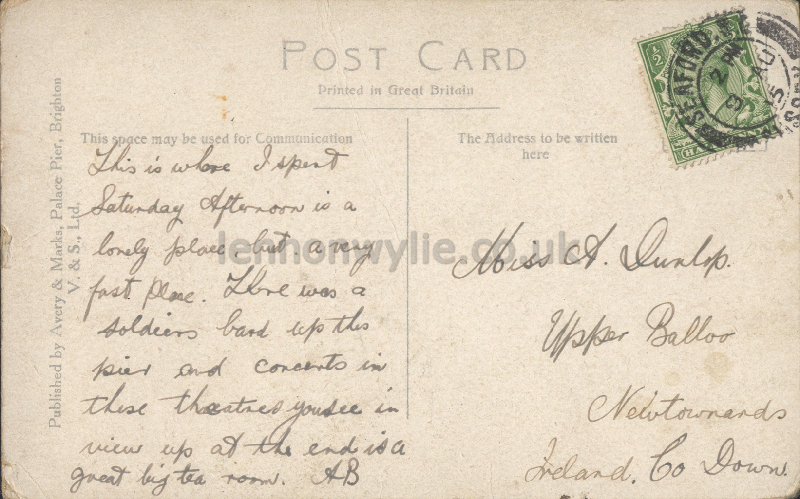 POST CARD
Printed in Great Britain
This space may be used for Communication
The Address to be written
here
Published by Avery & Marks, Palace Pier, Brighton
V. & S., Ltd.
This is where I spent
Saturday Afternoon is a
lonely place, but a very
fast place. There was a
soldiers band up this
pier and concerts in
these theatres you see in
view up at the end is a
great big tea room. AB
Miss A. Dunlop.
Upper Balloo
Newtownards
Ireland. Co Down.
SEAFORD
2 PM
9 AU
15
½
lennonwylie.co.uk